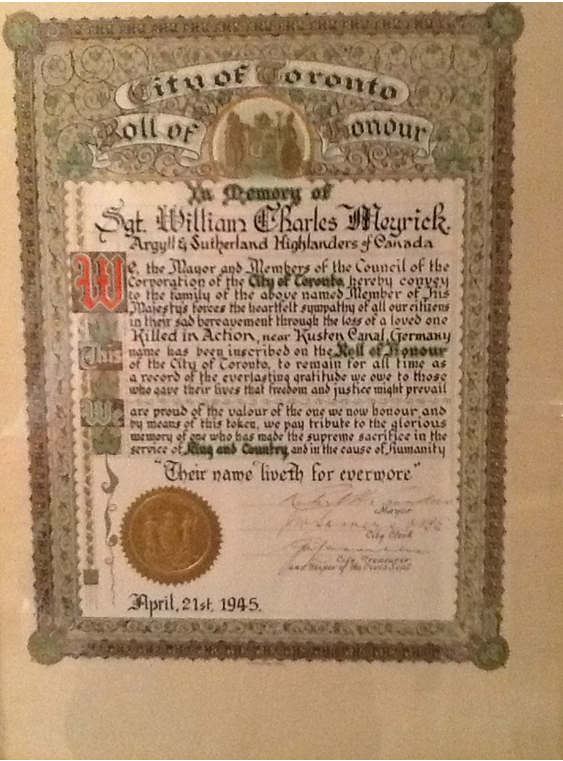 City of Toronto
Roll of Honour
In Memory of
Sgt. William Charles Meyrick.
Argyll & Sutherland Highlanders of Canada
We, the Mayor and Members of the Council of the
Corporation of the City of Toronto, hereby convey
to the family of the above named Member of his
Majesty's forces the heartfelt sympathy of all our citizens
in their sad bereavement through the loss of a loved one
Killed in Action, near Kusten Canal, Germany
This name has been inscribed on the Roll of Honour
of the City of Toronto, to remain for all time as
a record of the everlasting gratitude we owe to those
who gave their lives that freedom and justice might prevail
We are proud of the valour of the one we now honour and
by means of this token, we pay tribute to the glorious
memory of one who has made the supreme sacrifice in the
service of King and Country, and in the cause of humanity
"Their name liveth for evermore"
Mayor
City Clerk
City Treasurer
and Keeper of the Civic Seal
April, 21st, 1945.